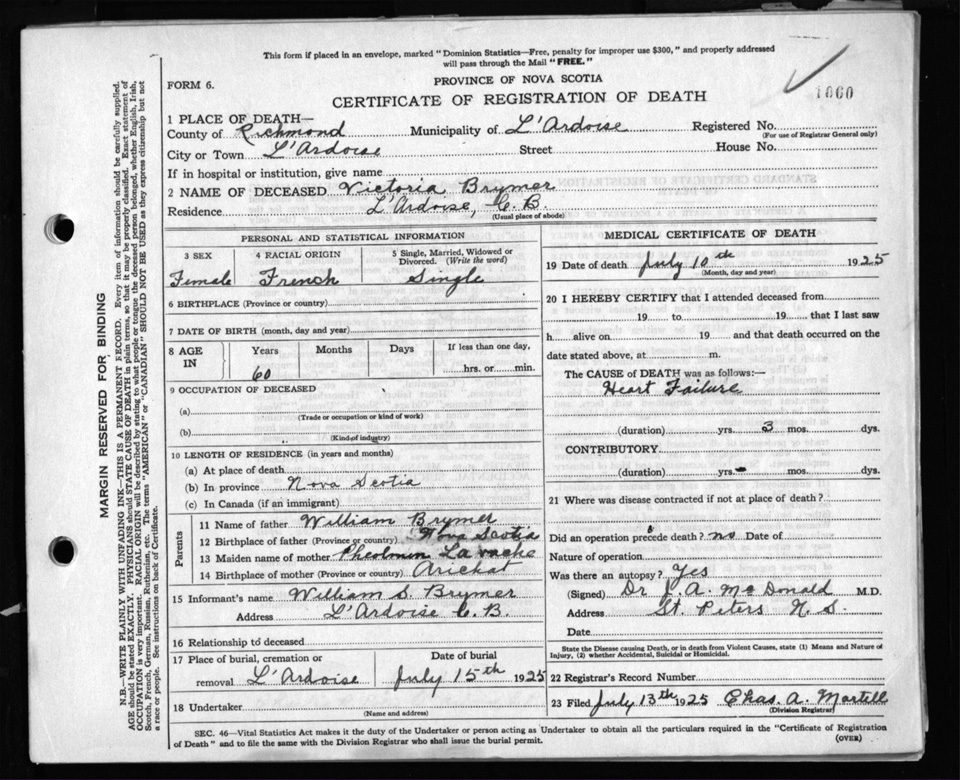 This form if placed in an envelope, marked "Dominion Statistics—Free, penalty for improper use $300," and properly addressed
will pass through the Mail "FREE."
PROVINCE OF NOVA SCOTIA
FORM 6.
CERTIFICATE OF REGISTRATION OF DEATH
1060
1 PLACE OF DEATH—
County of Richmond Municipality of L'Ardoise Registered No.
(For use of Registrar General only)
City or Town L'Ardoise Street House No.
If in hospital or institution, give name
2 NAME OF DECEASED Victoria Brymer
Residence L'Ardoise, C.B.
(Usual place of abode)
PERSONAL AND STATISTICAL INFORMATION
3 SEX
Female
4 RACIAL ORIGIN
French
5 Single, Married, Widowed or
Divorced. (Write the word)
Single
6 BIRTHPLACE (Province or country)
7 DATE OF BIRTH (month, day and year)
8 AGE
IN
Years
60
Months
Days
If less than one day,
hrs. or min.
9 OCCUPATION OF DECEASED
(a)
(Trade or occupation or kind of work)
(b)
(Kind of industry)
10 LENGTH OF RESIDENCE (in years and months)
(a) At place of death
(b) In province Nova Scotia
(c) In Canada (if an immigrant)
Parents
11 Name of father William Brymer
12 Birthplace of father (Province or country) Nova Scotia
13 Maiden name of mother La vache
14 Birthplace of mother (Province or country) Arichat
15 Informant's name William S. Brymer
Address L'Ardoise C.B.
16 Relationship to deceased
17 Place of burial, cremation or
removal L'Ardoise
Date of burial
July 15th 1925
18 Undertaker
(Name and address)
MEDICAL CERTIFICATE OF DEATH
19 Date of death July 10th 1925
(Month, day and year)
20 I HEREBY CERTIFY that I attended deceased from
19 to 19 that I last saw
h alive on 19 and that death occurred on the
date stated above, at m.
The CAUSE of DEATH was as follows:—
Heart Failure
(duration) yrs. 3 mos. dys.
CONTRIBUTORY
(duration) yrs. mos. dys.
21 Where was disease contracted if not at place of death?
Did an operation precede death? no Date of
Nature of operation
Was there an autopsy? Yes
(Signed) Dr A. McDonald M.D.
Address St. Peters N.S.
Date
State the Disease causing Death, or in death from Violent Causes, state (1) Means and Nature of
Injury, (2) whether Accidental, Suicidal or Homicidal.
22 Registrar's Record Number
23 Filed July 13th 1925 Chas. A. Martell
(Division Registrar)
SEC. 46—Vital Statistics Act makes it the duty of the Undertaker or person acting as Undertaker to obtain all the particulars required in the "Certificate of Registration
of Death" and to file the same with the Division Registrar who shall issue the burial permit.
(OVER)
MARGIN RESERVED FOR BINDING
N.B.—WRITE PLAINLY WITH UNFADING INK—THIS IS A PERMANENT RECORD. Every item of information should be carefully supplied.
AGE should be stated EXACTLY. PHYSICIANS should STATE CAUSE OF DEATH in plain terms, so that it may be properly classified. Exact statement of
OCCUPATION is very important. RACIAL ORIGIN will be described by stating to what people or tongue the deceased person belonged, whether English, Irish,
Scotch, French, German, Russian, Ruthenian, etc. The terms "AMERICAN" or "CANADIAN" SHOULD NOT BE USED as they express citizenship but not
a race or people. See instructions on back of Certificate.